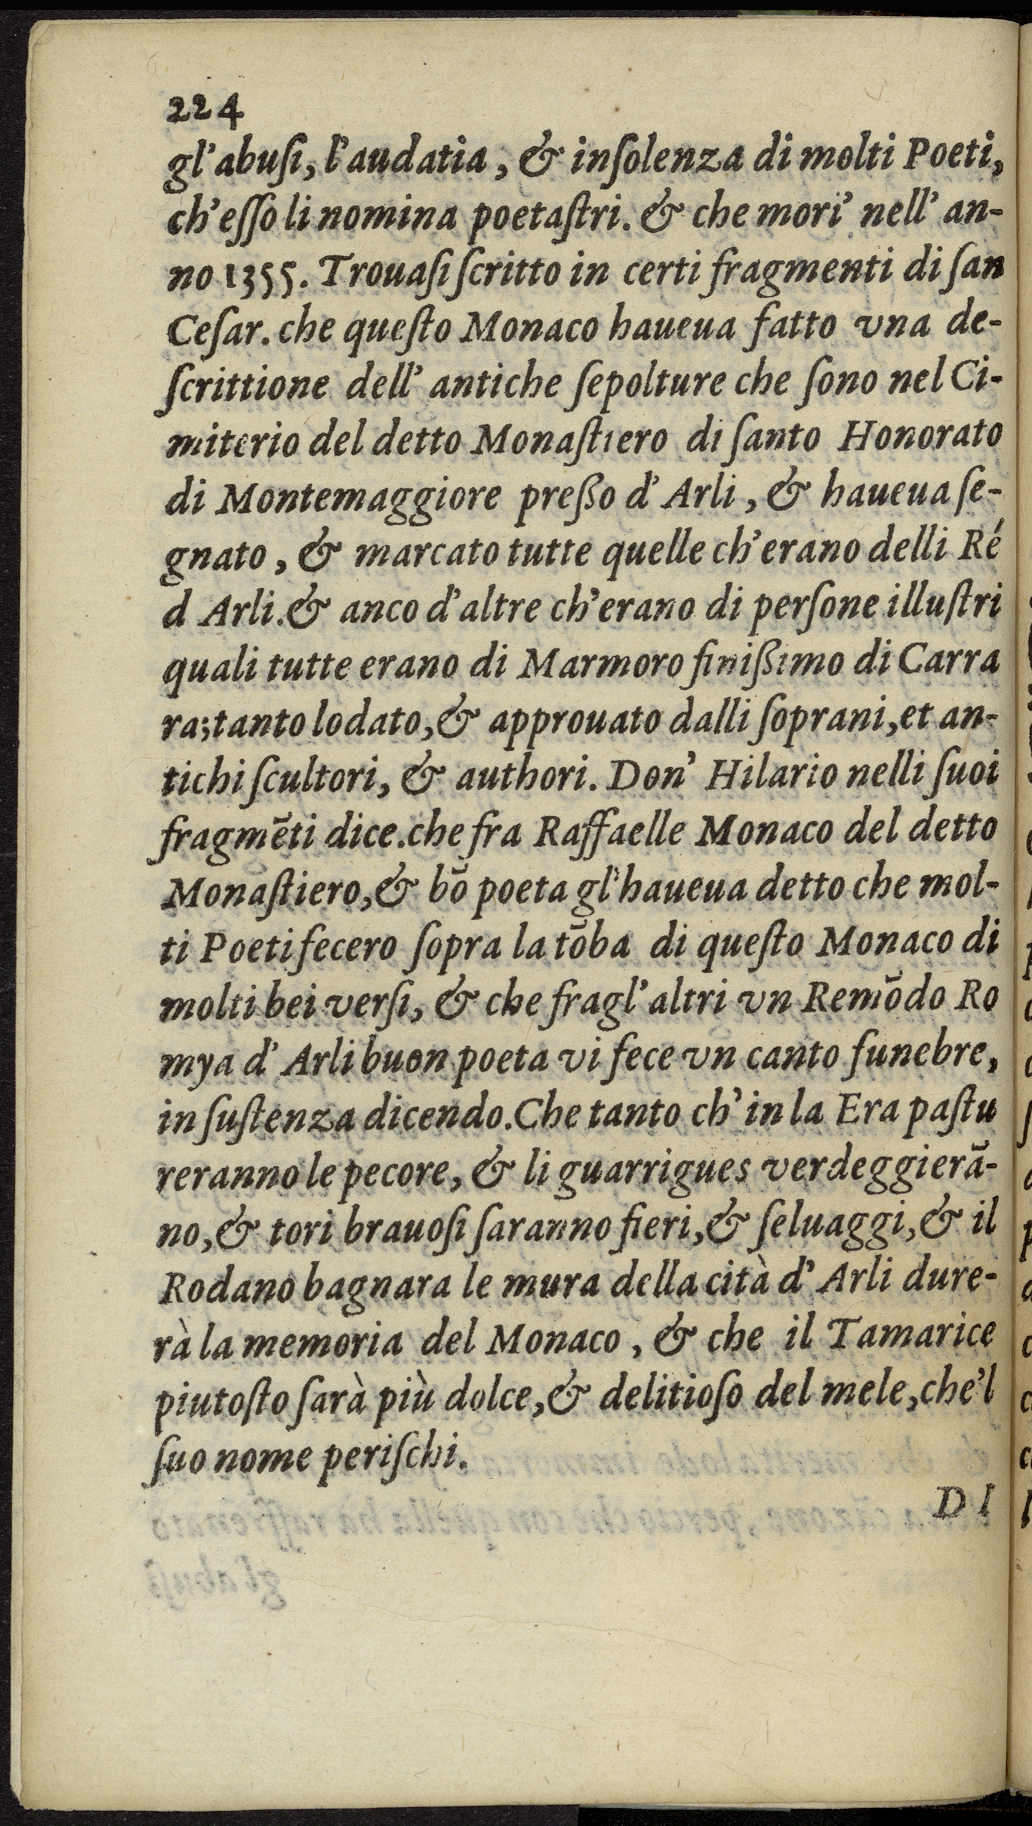 224
gl'abuſi, l'audatia, & inſolenza di molti Poeti,
ch'eſſo li nomina poetaſtri. & che mori' nell' an-
no 1355. Trouaſi ſcritto in certi fragmenti di ſan
Ceſar. che queſto Monaco haueua fatto vna de-
ſcrittione dell' antiche ſepolture che ſono nel Ci-
miterio del detto Monaſtiero di ſanto Honorato
di Montemaggiore preßo d' Arli, & haueua ſe-
gnato, & marcato tutte quelle ch'erano delli Ré
d Arli.& anco d'altre ch'erano di perſone illuſtri
quali tutte erano di Marmoro finißimo di Carra
ra;tanto lodato,& approuato dalli ſoprani,et an-
tichi ſcultori, & authori. Don' Hilario nelli ſuoi
fragmēti dice.che fra Raffaelle Monaco del detto
Monaſtiero,& bō poeta gl'haueua detto che mol-
ti Poeti fecero ſopra la tōba di queſto Monaco di
molti bei verſi, & che fragl'altri vn Remōdo Ro
mya d' Arli buon poeta vi fece vn canto funebre,
in ſuſtenza dicendo.Che tanto ch'in la Era paſtu
reranno le pecore, & li guarrigues verdeggierā-
no,& tori brauoſi ſaranno fieri,& ſeluaggi,& il
Rodano bagnara le mura della cità d' Arli dure-
rà la memoria del Monaco, & che il Tamarice
piutoſto ſarà più dolce,& delitioſo del mele,che'l
ſuo nome periſchi.
DI